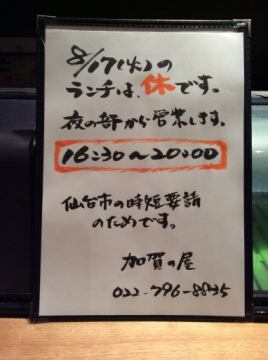 8/17(火)の
ランチは、休です。
夜の部から営業します。
16:30〜20:00
仙台市の時短要請
のためです。
加賀の屋
022-796-8835